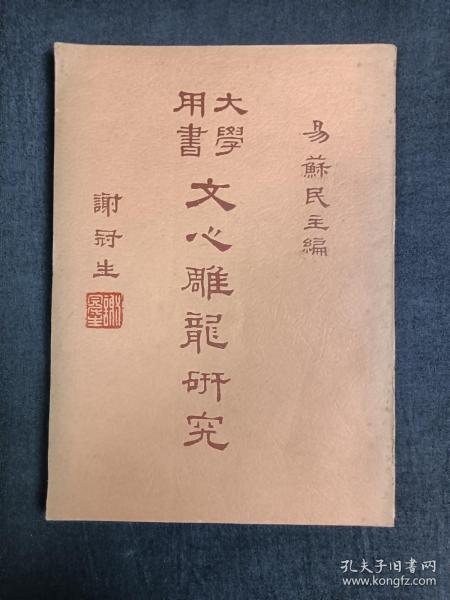 易蘇民主編
大學用書
文心雕龍研究
謝冠生
孔夫子旧书网
www.kongfz.com